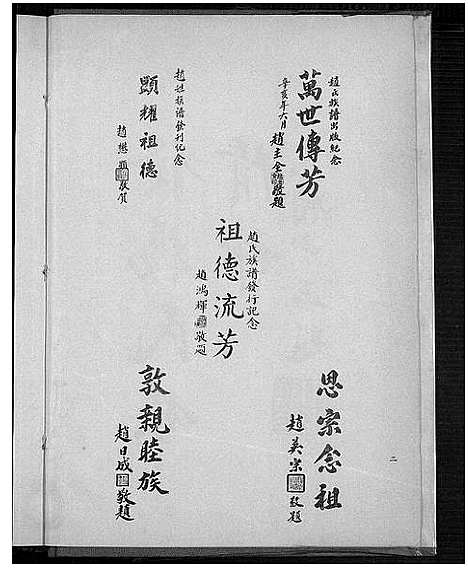 趙氏族譜出版紀念
萬世傳芳
辛亥年六月
趙主全敬題
趙姓族譜發刊紀念
顯耀祖德
趙懋敬賀
趙氏族譜發行記念
祖德流芳
趙鴻輝敬題
思宗念祖
趙英宗敬題
敦親睦族
趙日成敬題
二